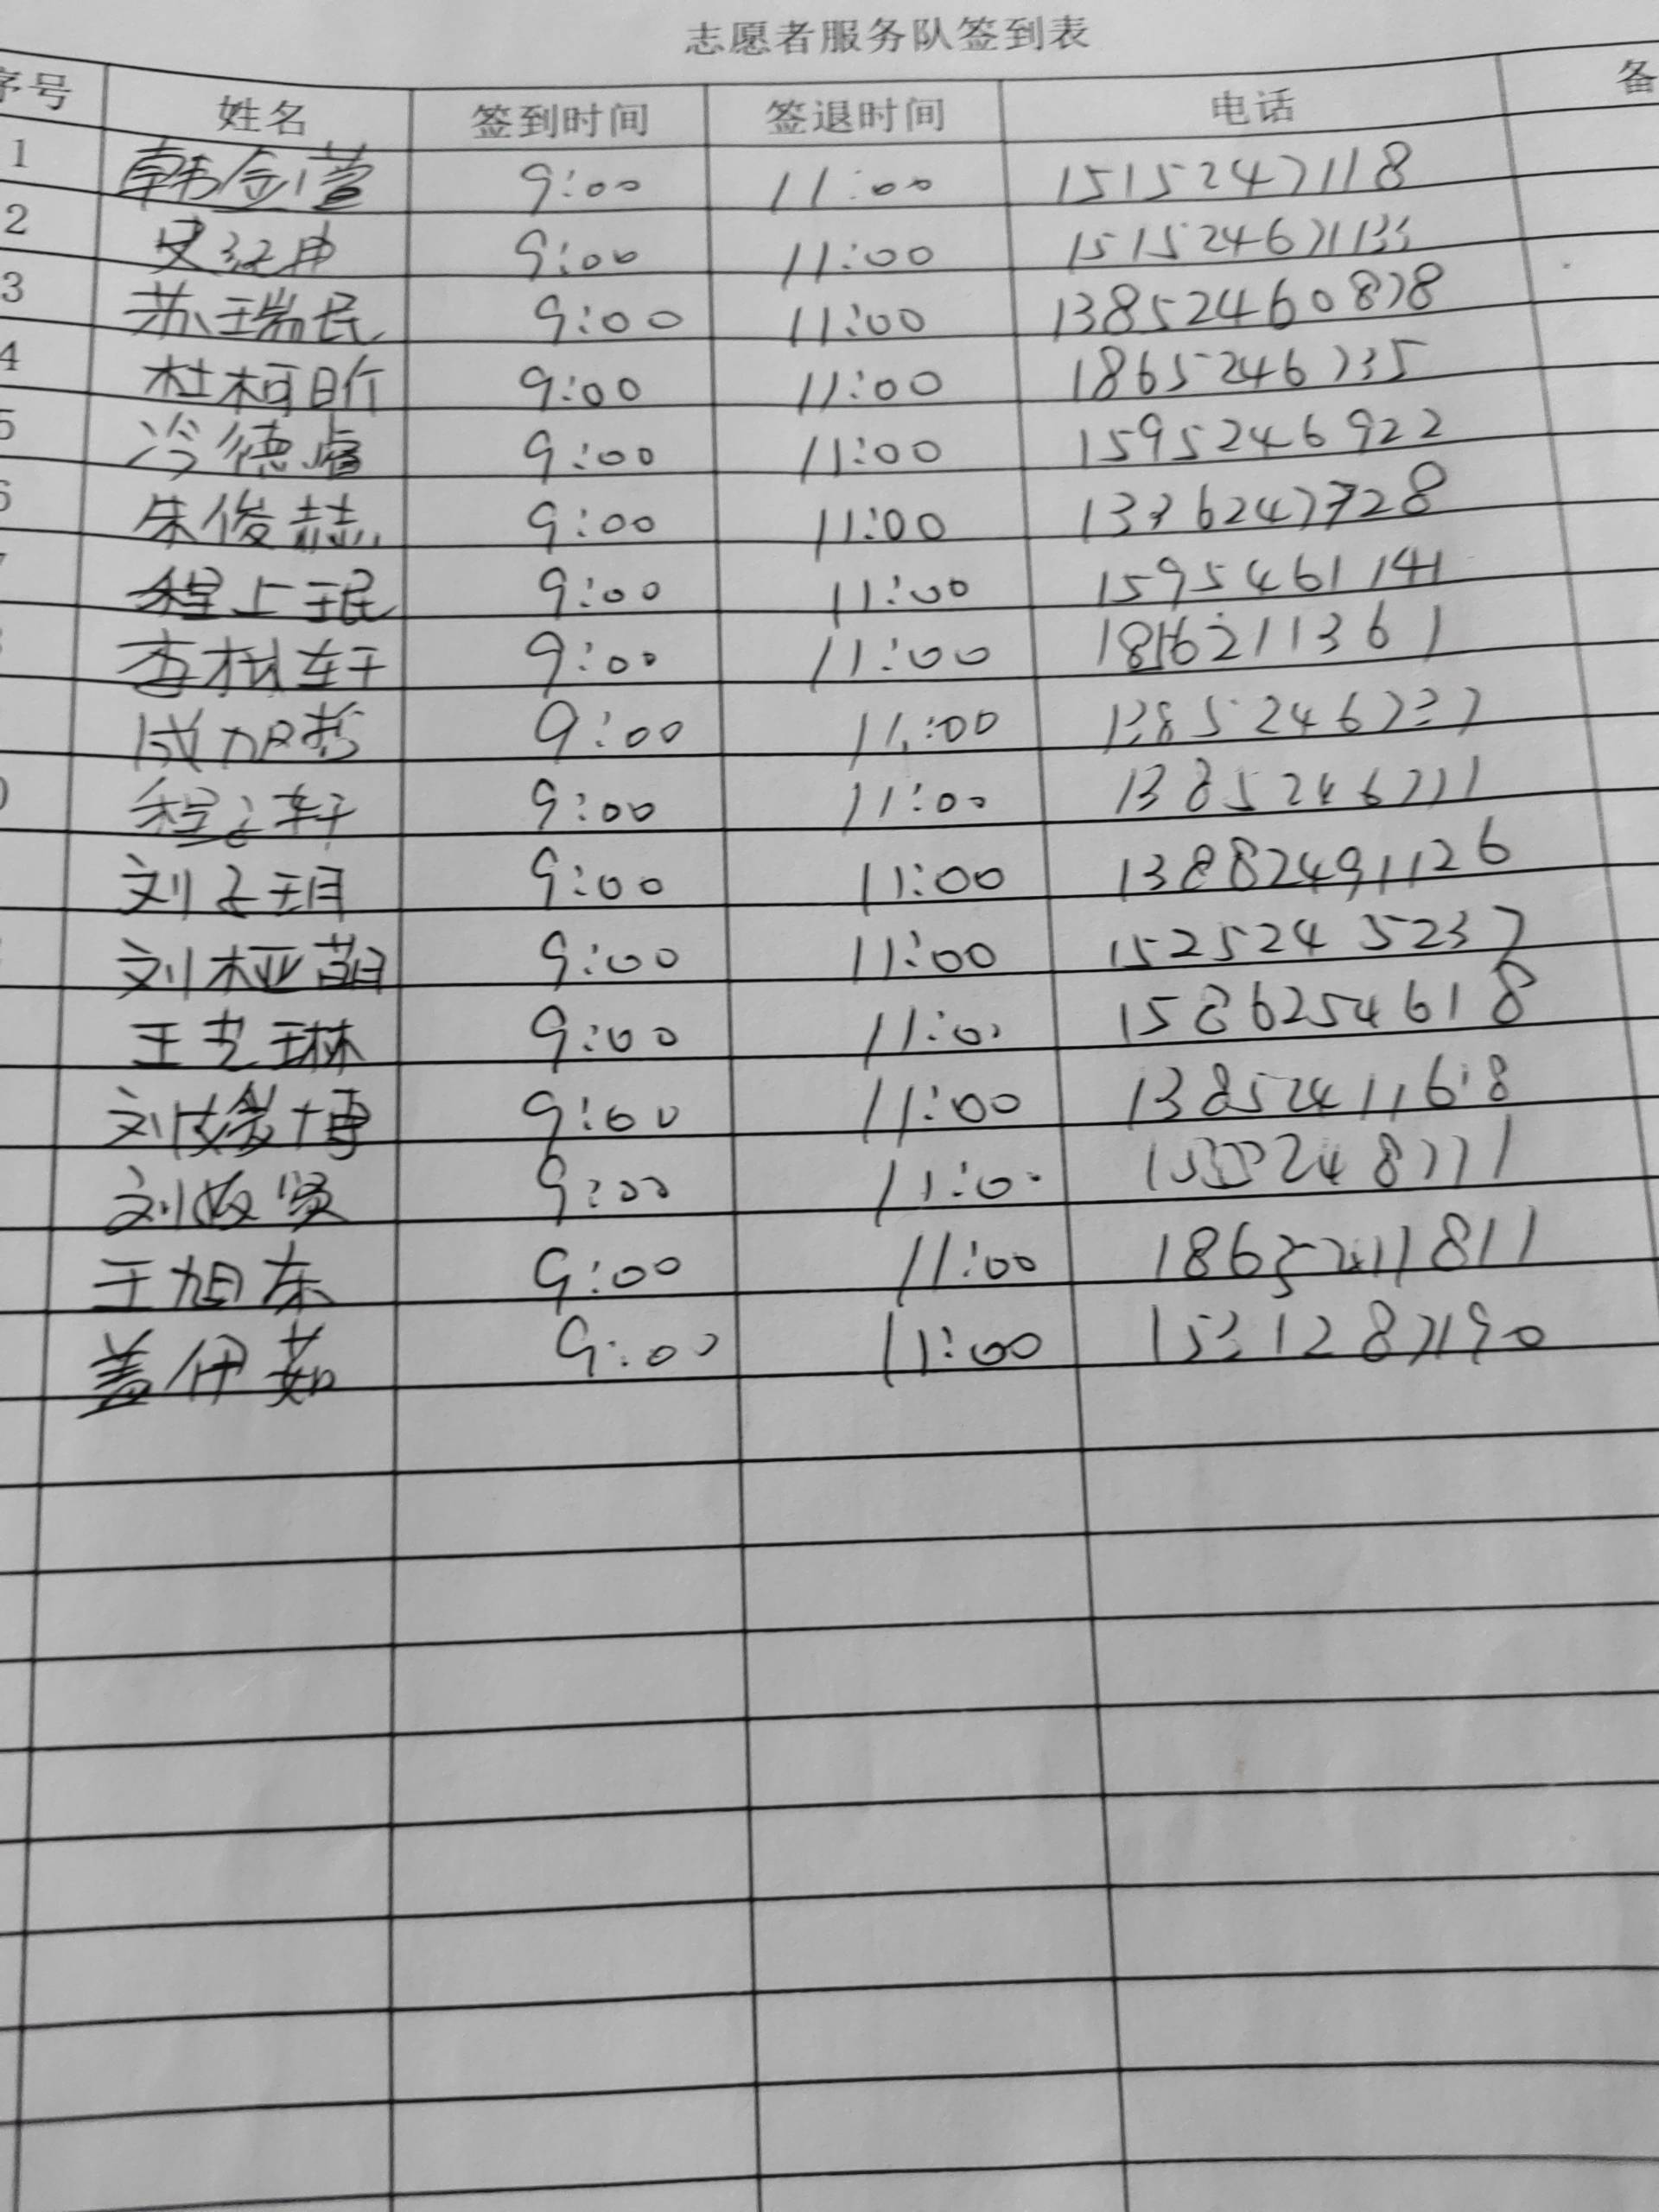 志愿者服务队签到表
序号 姓名 签到时间 签退时间 电话 备
1 韩金萱 9:00 11:00 15152471118
2 9:00 11:00
3 苏瑞民 9:00 11:00 13852460878
4 杜柯昕 9:00 11:00 1865246735
5 冷德睿 9:00 11:00 1595246922
6 朱俊喆 9:00 11:00
程上珉 9:00 11:00 1595461141
李彬轩 9:00 11:00
成加哲 9:00 11:00 1385246737
程子轩 9:00 11:00 1385246771
刘子玥 9:00 11:00 13882491126
刘桠萌 9:00 11:00 1525245237
王艺琳 9:00 11:00 1586254618
刘博 9:00 11:00 1385241168
刘贤 9:00 11:00
王旭东 9:00 11:00
盖伊茹 9:00 11:00 15312871190